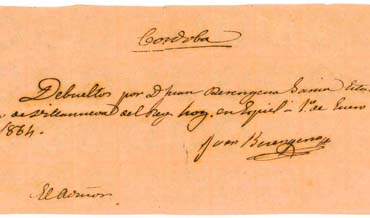 Cordoba
Debueltos por D Juan Berengena Garcia
de Villanueva del Rey hoy, en Espiel a 1º de Enero
1884.
Juan Berengena
El admor